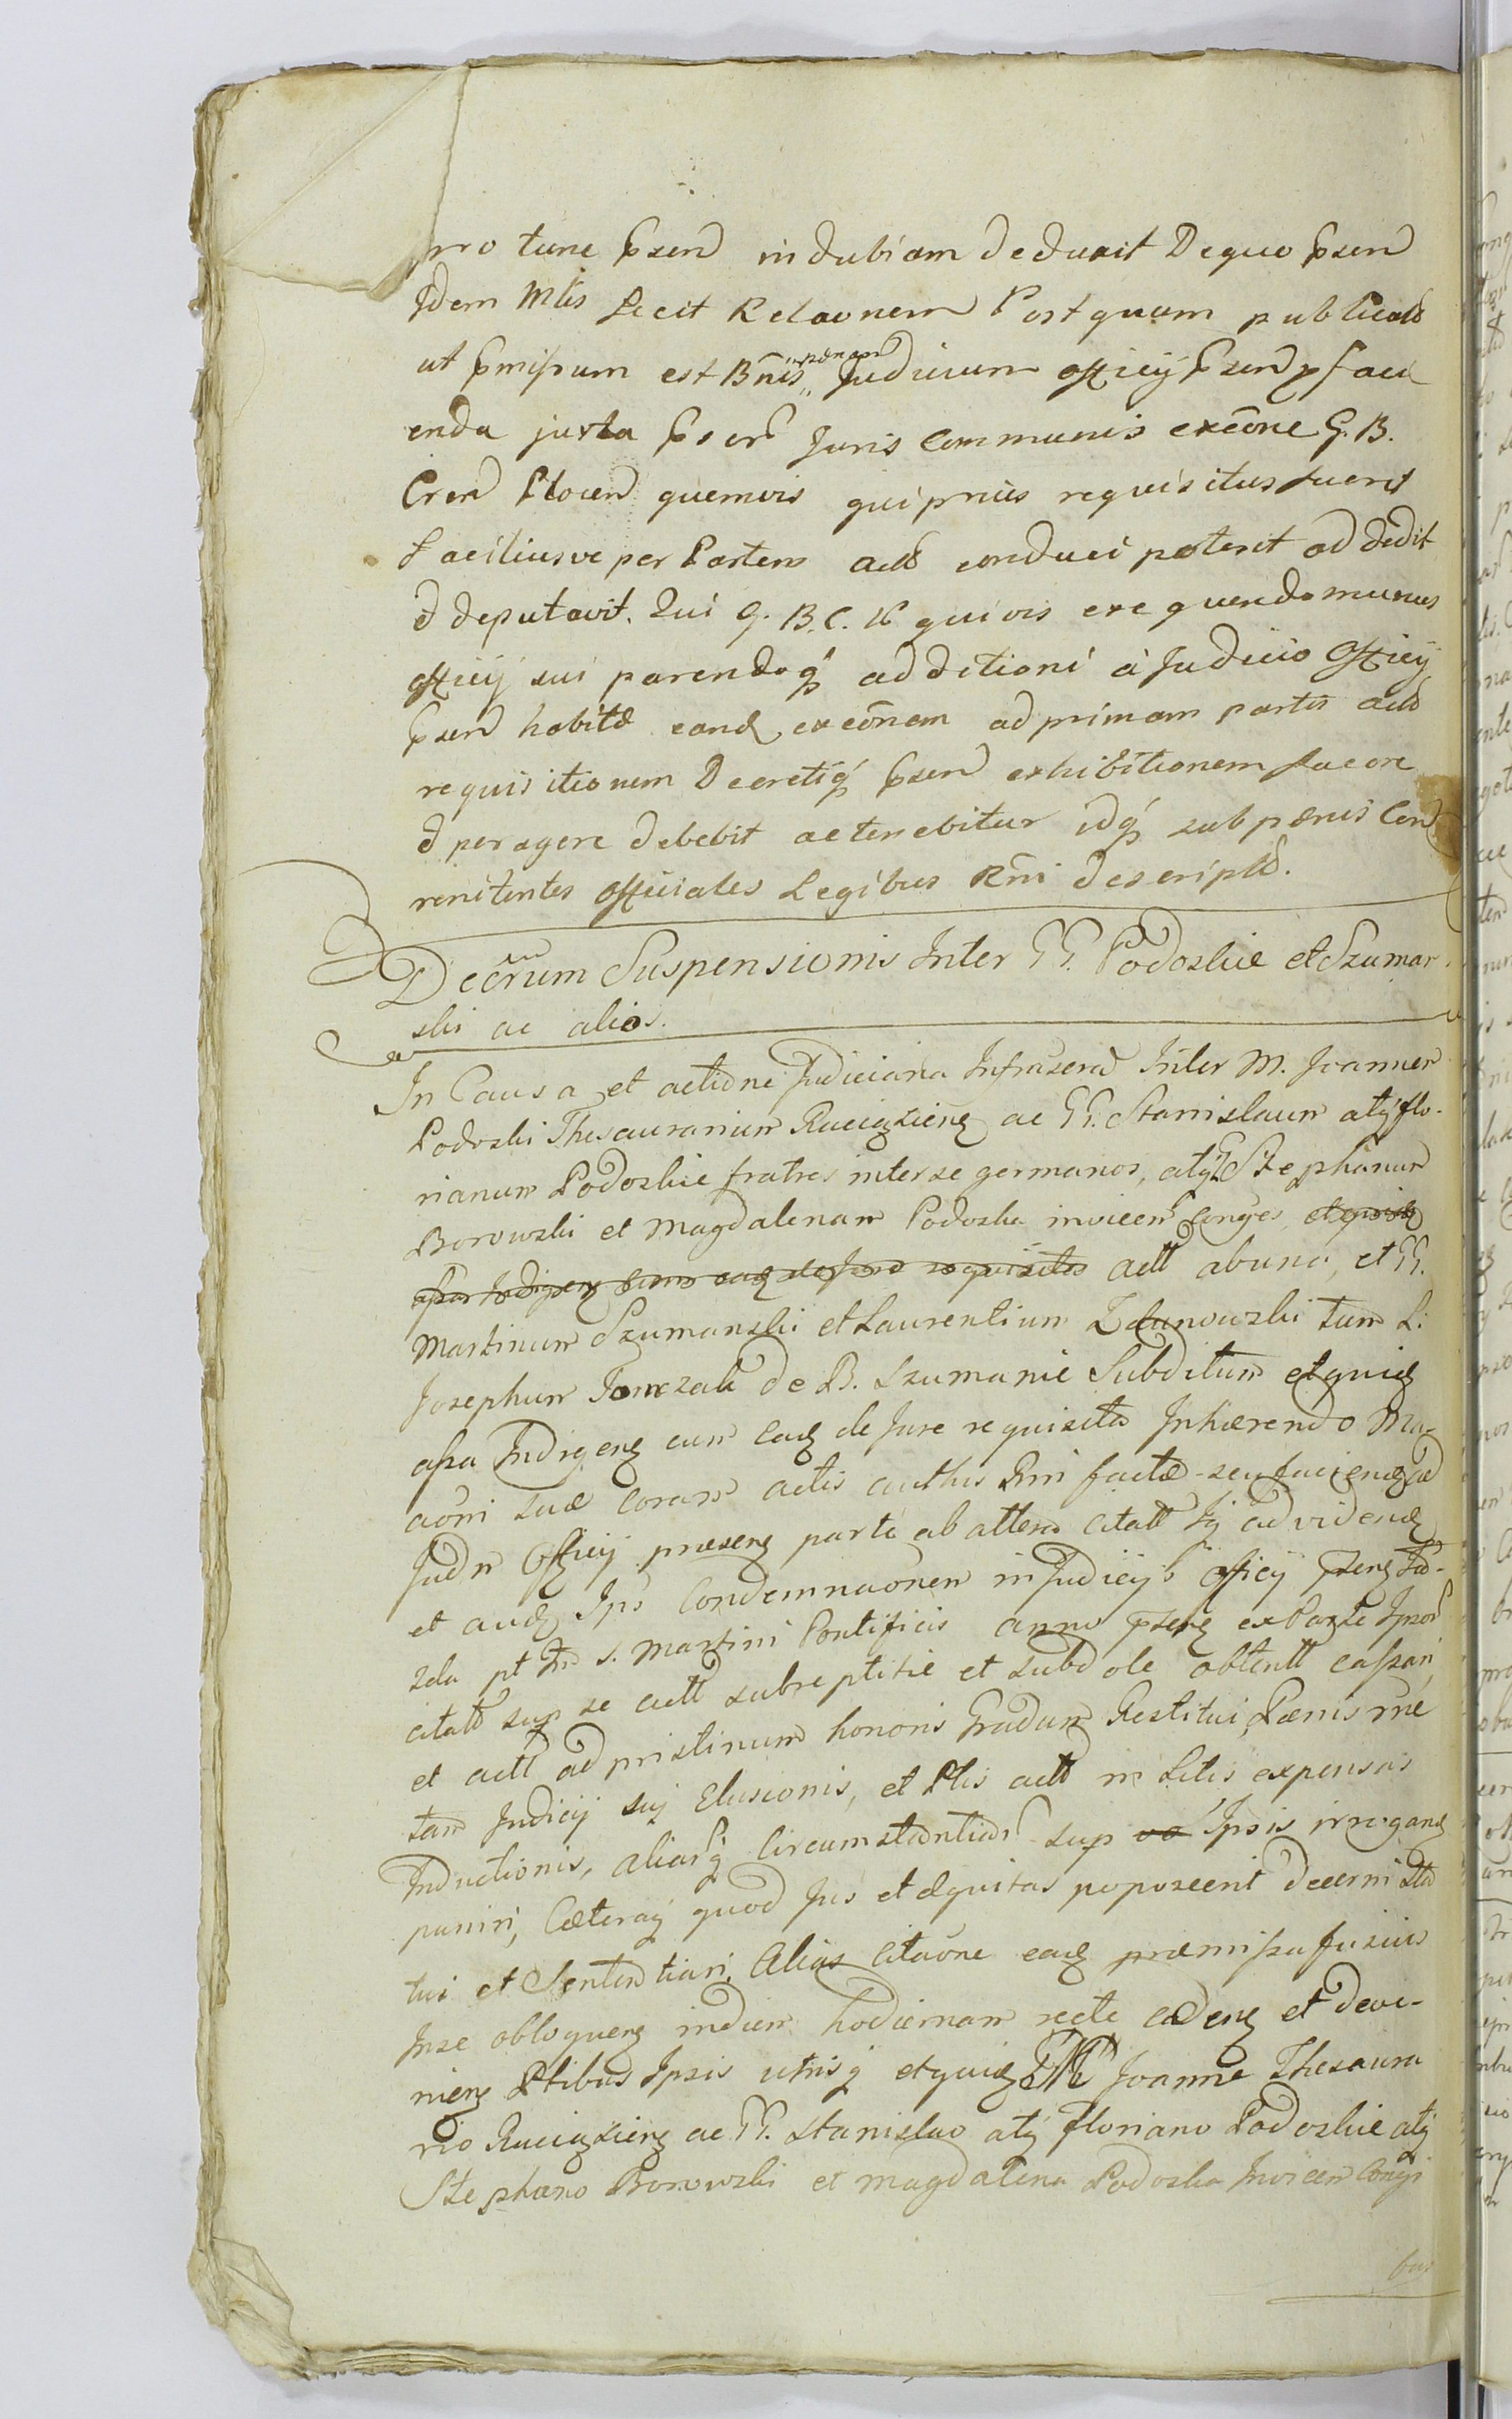 pro tunc Psend in dubiam deduxit De quo Psen
Idem Mlis fecit Relaonem Postquam publicato
ut Pmissum est Bnis Judicium officij Psend p faci
enda juxta Pser Juris Communis execone G. B.
Cren Plocen quemvis qui prius requisitus fuerit
faciliusve per Partem acto conduci poterit addedit
et deputavit. Qui G. B. C. quivis exequendo munus
officij sui parendoq additioni à Judicio Officij
Psend habitæ eand execonem ad primam partis acto
requisitionem Decretiq Psend exhibitionem facere
et peragere debebit ac tenebitur idq sub pænis Con
renitentes officiales Legibus Rni descriptis.
Decrum Suspensionis Inter GG. Podoskie et Szuman
ski ac alios.
In Causa et actione Judiciaria Infrascrad Inter M. Joannem
Podoski Thesaurarium Raciązieng ac GG. Stanislaum atq flo-
rianum Podoskie fratres inter se germanos, atq Stephanum
Borowski et Magdalenam Podoska invicem Conges
actt ab una, et GG.
Martinum Szumanski et Laurentium Zdunowski tum L.
Josephum Tomczak de B. Szumanie Subditum et quid
assa Indigeng cum Ead de Jure requisita Inhærendo Ma-
aoni suæ coram actis authis Rni factæ seu faciendæ ad
Judm Officij præseng parte ab altera citatt Ij ad videnz
et audz Ips Condemnaonem in Judicijs officij pseng
pt S. Martini Pontificis anno pseng ex Parte Ipsor
citatt sup se actt subreptitie et subdole obtentt cassari,
et actt ad pristinum honoris Gradum Restitui, Pænis me
tam Judicij suj Elusionis, et Ptis actt in Litis expensas
Inductionis, aliarq Circumstantiar sup Ipsis irrogand
puniri, Cæteraq quod Jus et Æquitas poposcerit decerni Sta
tui et Sententiari, Alias Citaone ead præmissa fusius
In se obloqueng in diem hodiernam recte cadeng et deve-
nieng Ptibus Ipsis utrisq et quid M Joanne Thesaura
rio Raciązieng ac GG. Stanislao atq floriano Podoskie atq
Stephano Borowski et Magdalena Podoska Invicem Congi
bus